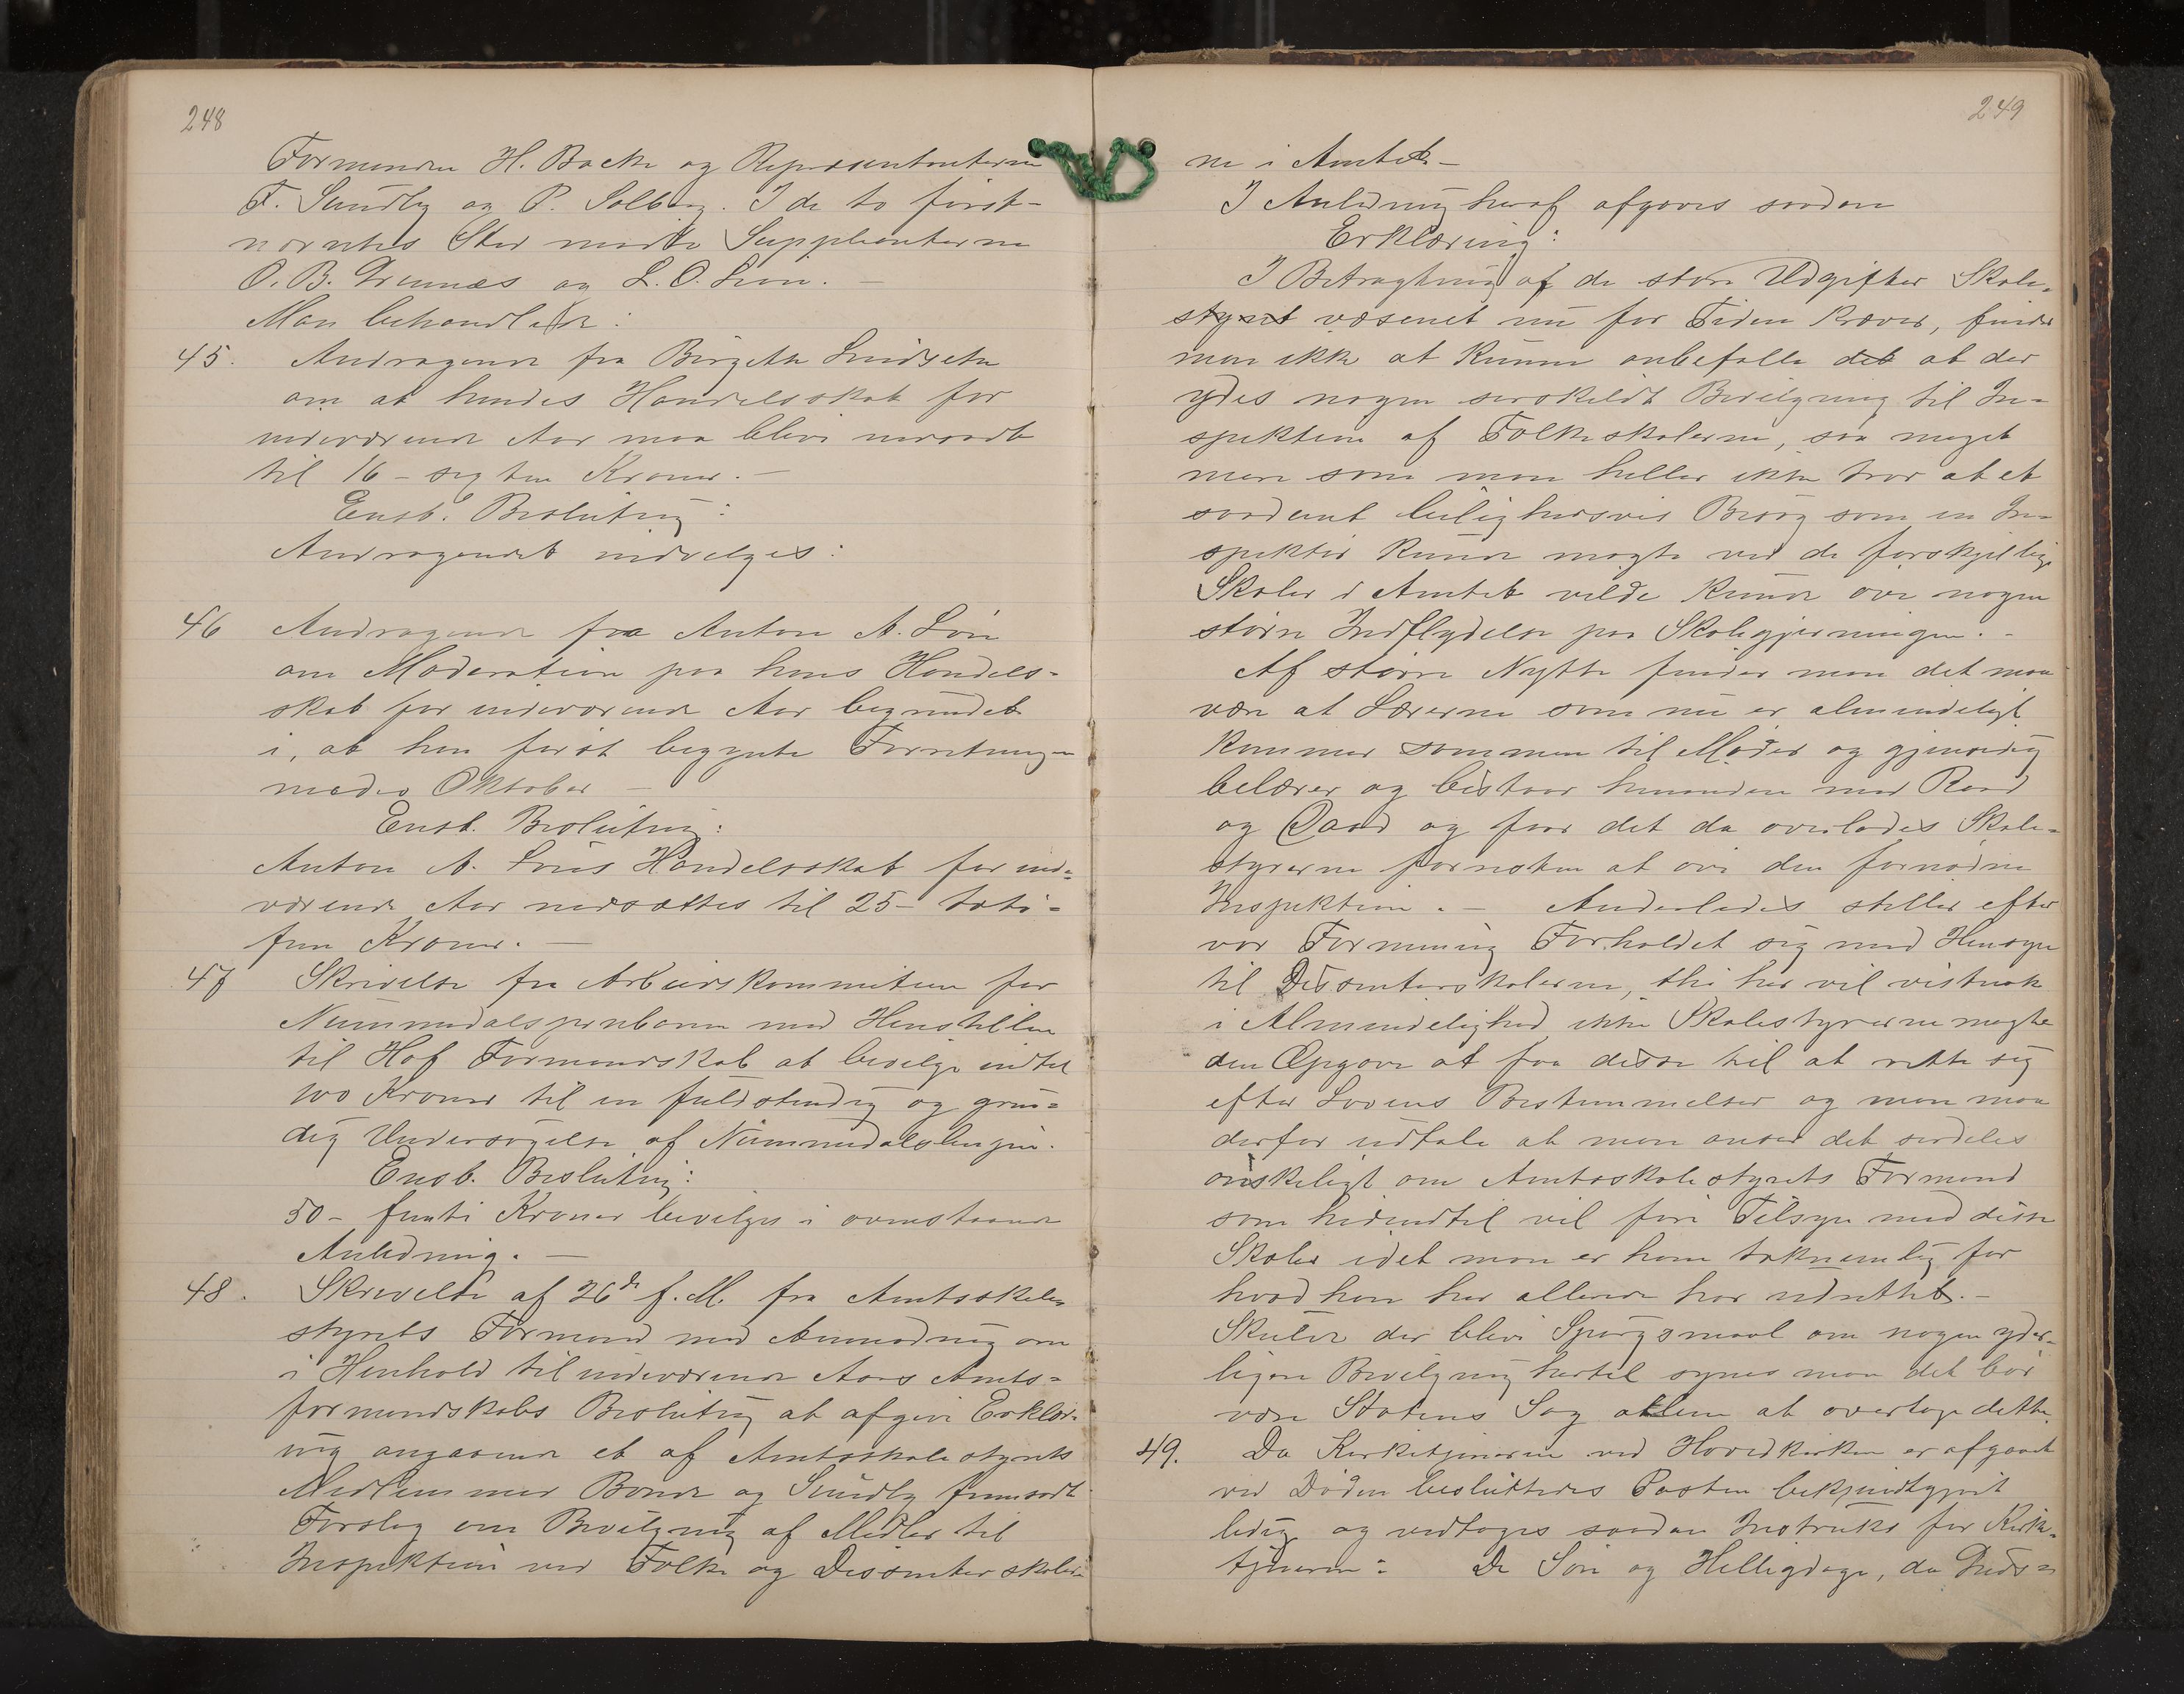 248
Formanden H. Backe og Repræsentanterne
F. Sundby og P. Solberg. I de to først-
nævntes Sted mødte Suppleanterne
O. B. og L. O. Lien. –
Man behandlede:
45. Andragende fra Birgethe Lindseth
om at hendes Handelsskat for
indeværende Aar maa blive nedsadt
til 16 – segsten Kroner. –
Enst. Beslutning:
Andragendet indvilges:
46 Andragende fra Anton A. Löu
om Moderation paa hans Handels-
skat for indeværende Aar begrundet
i, at han först begynte Forretningen
medio Oktober –
Enst. Beslutning:
Anton A. Löus Handelsskat for inde-
værende Aar nedsættes til 25 – toti-
fem Kroner. –
47 Skrivelse fra Arbeidskommiteen for
Nummedalsjernbanen med Henstillen
til Hof Formandskab at bevilge indtil
100 Kroner til en fuldstendig og grun-
dig Undersøgelse af Nummedalslinjen.
Enst. Beslutning:
50 – femti Kroner bevilges i ovenstaaende
Anledning. –
48. Skrivelse af 26de f. M. fra Amtsskole-
styrets Formand med Anmodning om
i Henhold til indeværende Aars Amts-
formandskabs Beslutning at afgive Erklær-
ing angaaende et af Amtsskolestyrets
Medlemmer Bonde og Sundby fremsadt
Forslag om Bevilgning af Midler til
Inspektion ved Folke og Dissenterskoler-
249
ne i Amtet. –
I Anledning heraf afgaves saadan
Erklæring:
I Betragtning af de store Udgifter Skole-
styret væsenet nu for Tiden kræver, finder
man ikke at kunne anbefalle det at der
ydes nogen serskildt Bevilgning til In-
spektion af Folkeskolerne, saa meget
mere som man heller ikke tror at et
saadant leilighedsvis Besøg som en In-
spektör kunde magte ved de forskjellige
Skoler i Amtet vilde kunde öve nogen
större Indflydelse paa Skolegjerningen. –
Af större Nytte finder man det maa
være at Lærerne som nu er almindeligt
kommer sammen til Möder og gjensidig
belærer og bistaar hinanden med Raad
og Daad og faar det da overlades Skole-
styrerne fornesten at öve den fornödne
Inspektion. – Anderledes stiller efter
vor Formening Forholdet sig med Hensyn
til Dissenterskolerne, thi her vil vistnok
i Almindelighed ikke Skolestyrerne magte
den Opgave at faa disse til at rette sig
efter Lovens Bestemmelser og man maa
derfor udtale at man anser det serdeles
önskeligt om Amtsskolestyrets Formand
som hidindtil vil före Tilsyn med disse
Skoler idet man er ham taknemlig for
hvad han her allerede har udrettet. –
Skulde der blive Spørgsmaal om nogen yder-
ligere Bevilgning hertil synes man det bör
være Statens Sag allene at overtage dette.
49. Da Kirketjeneren ved Hovedkirken er afgaaet
ved Döden besluttedes Posten bekjendtgjort
ledig og vedtages saadan Instruks for Kirke-
tjeneren: De Sön og Helligdage, da Guds-